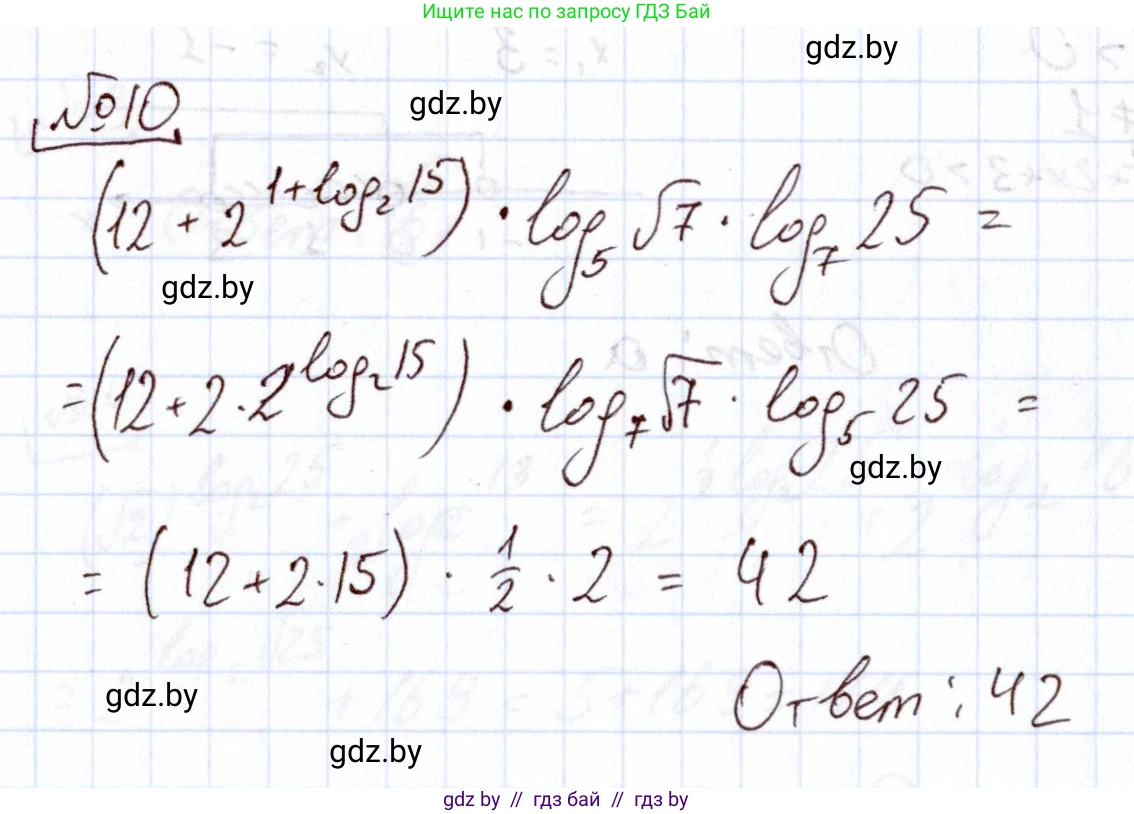 Ищите нас по запросу ГДЗ Бай
gdz.by
№10
gdz.by
(12 + 2^{1+log_2 15}) · log_5 √7 · log_7 25 =
gdz.by
= (12 + 2 · 2^{log_2 15}) · log_7 √7 · log_5 25 =
gdz.by
= (12 + 2 · 15) · 1/2 · 2 = 42
gdz.by
Ответ: 42
gdz.by
gdz by // гдз бай // гдз by